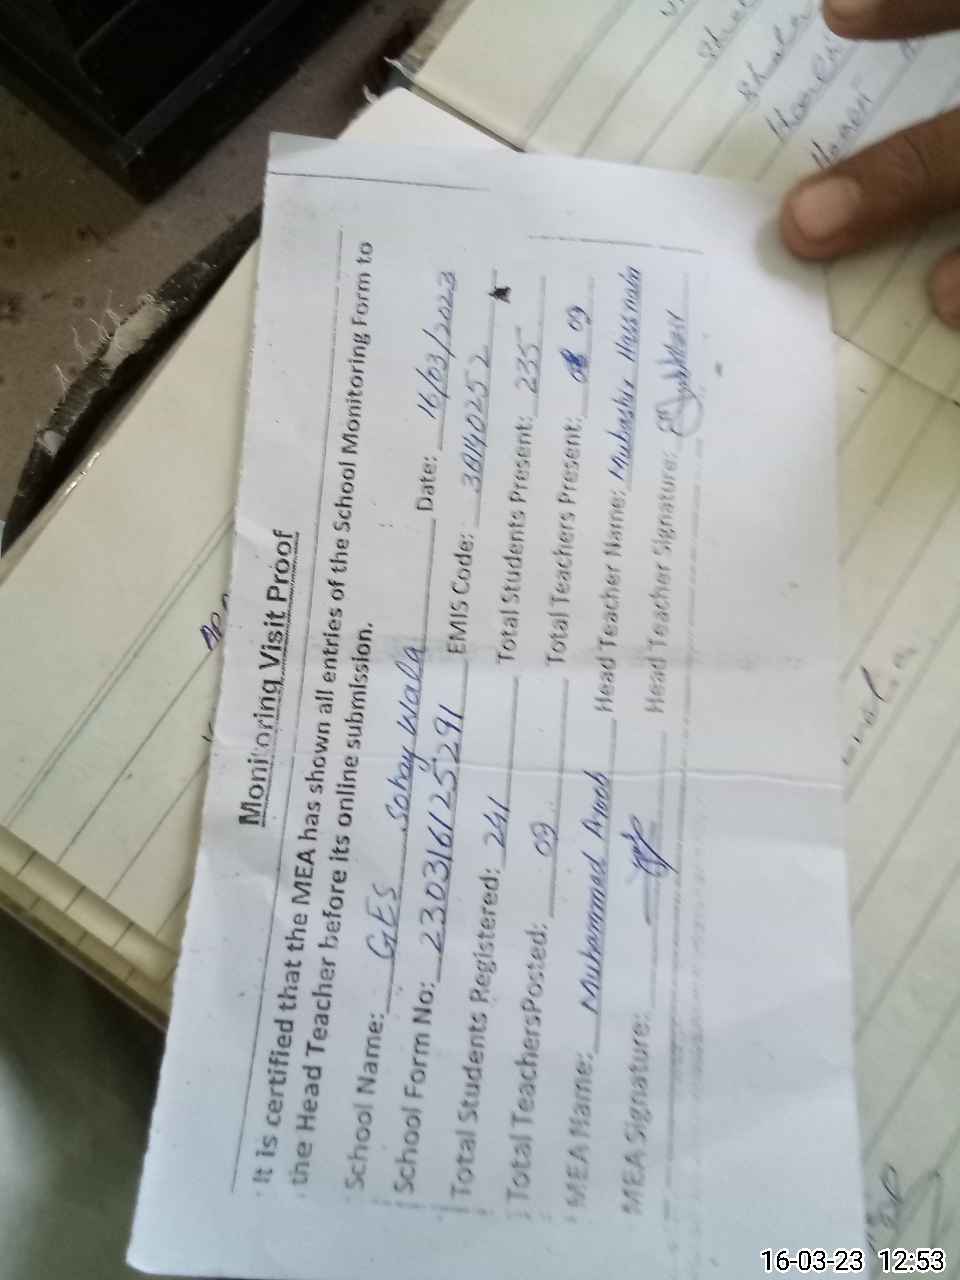 Monitoring Visit Proof
It is certified that the MEA has shown all entries of the School Monitoring Form to
the Head Teacher before its online submission.
School Name: GES Sohay Wala Date: 16/03/2023
School Form No: 23031612 5291 EMIS Code: 38140252
Total Students Registered: 241 Total Students Present: 235
Total TeachersPosted: 09 Total Teachers Present: 09
MEA Name: Muhammad Head Teacher Name: Mubashir Hussnain
MEA Signature: Head Teacher Signature:
16-03-23 12:53